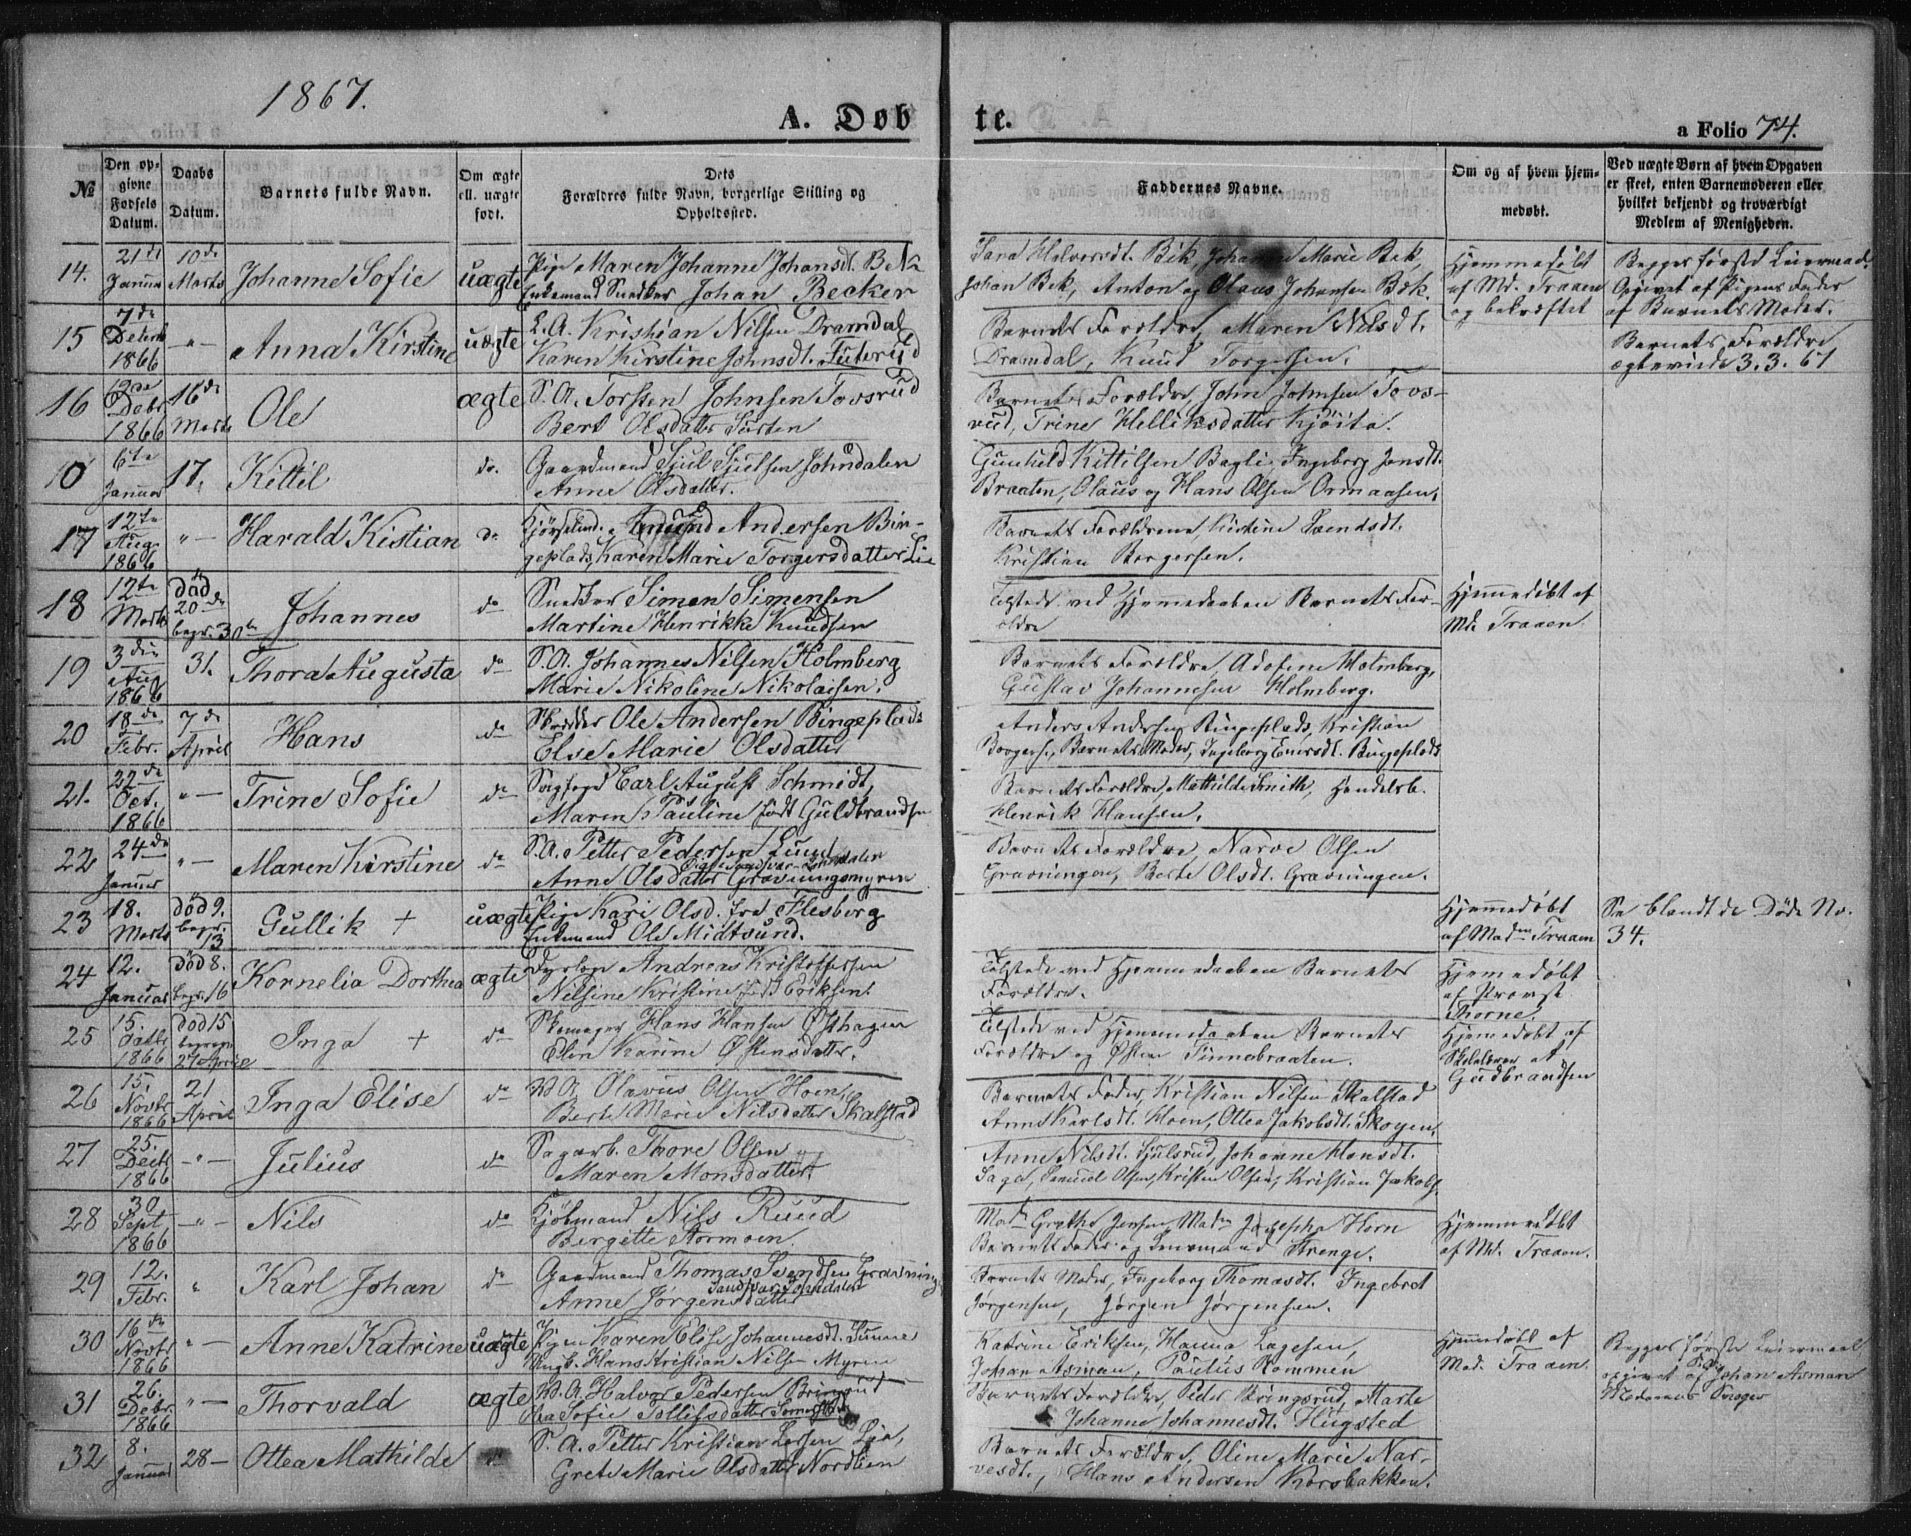 1867.
A. Døbte.
a Folio 74.
№
Den opgivne Fødsels Datum.
Daabs Datum.
Barnets fulde Navn.
Om ægte ell. uægte født.
Dets Forældres fulde Navn, borgerlige Stilling og Opholdssted.
Faddernes Navne.
Om og af hvem hjemmedøbt.
Ved uægte Børn af hvem Opgaven er skeet, enten Barnemoderen eller hvilket bekjendt og troværdigt Medlem af Menigheden.
14. 21de Januar 10de Marts Johanne Sofie uægte
Pige Maren Johanne Johansdt. B
Enkemand Snedker Johan Becker
Sara Halvorsdt. Bek, Johanne Marie Bek,
Johan Bek, Anton og Olaus Johansen Bek.
Hjemmedøbt
af Md. Traaen
og bekræftet
Begges første Leiermaal.
Opgivet af Pigens Fader
af Barnets Moder.
15 7de Decbr 1866 "— Anna Kirstine uægte
L.A. Kristian Nilsen Dramdal
Karen Kirstine Johnsdt. Futerud
Barnets Forældre, Maren Nilsdt.
Dramdal, Knud Torgersen.
Barnets Forældre
ægteviede 3.3.67
16 12te Debr. 1866 16de Marts Ole ægte
S.A. Torsten Johnsen Tovsrud
Bert Olsdatter
Barnets Forældre, John Johnsen Tovsrud, Trine Helliksdatter Kjøita.
10 6te Januar 17. Kittil do.
Gaardmand Sjul Sjulsen Johndalen
Anne Olsdatter.
Gunhild Kittilsen Bagli, Ingeborg Jonsdt.
Braaten, Olaus og Hans Olsen Ormaasen.
17 12te Aug. 1866 "— Harald Kistian do
Amund Andersen Bingeplads, Karen Marie Torgersdatter Lie
Barnets Forældrene, Kirstine Svendsdt.
Kristian Borgersen.
18 12te Marts død 20de begr. 30te Johannes do
Snedker Simen Simensen
Martine Henrikke Knudsen
Tilstede ved Hjemmedaaben Barnets Forældre
Hjemmedøbt af
Md. Traaen
19 3die Aug 1866 31. Thora Augusta do
S.A. Johannes Nilsen Holmberg
Marie Nikoline Nikolaisen.
Barnets Forældre, Adofine Holmberg,
Gustav Johannesen Holmberg.
20 18de Febr. 7de April Hans do
Skrædder Ole Andersen Bingeplads
Else Marie Olsdatter
Anders Andersen Bingeplads, Kristian
Borgers., Barnets Moder, Ingeborg Einersdt. Bingeplads
21. 22de Oct. 1866 "— Trine Sofie do
Carl August Schmidt,
Maren Pauline født Guldbrandsen
Barnets Forældre, Mathilde Smith, Handelsb.
Henrik Hansen.
22 24de Januar "— Maren Kirstine do
S.A. Petter Pedersen Lund
Anne Olsdatter Gravningsmyren
Barnets Forældre, Narve Olsen
Gravningen, Berte Olsdt. Gravningen.
23 18. Marts død 9. begr. 13 Gullik + uægte
Pige Kari Olsd. fra Flesberg
Enkemand Ole Midtsund.
Hjemmedøbt
af Maden Traaen
Se blandt de Døde No.
34.
24 12. Januar død 8. begr. 16 Kornelia Dorthea ægte
Andreas Kristoffersen
Nilsine Kristine født Eriksen.
Tilstede ved Hjemmedaaben Barnets
Forældre.
Hjemmedøbt
af Provst
Thorne.
25 15. 1866 død 15 begr. 27 April Inga + do
Skomager Hans Hansen Østhagen
Elen Karine Østensdatter.
Tilstede ved Hjemmedaaben Barnets
Forældre og Østen Tinnebraaten.
Hjemmedøbt af
Skolelærer
Gudbrandsen
26 15. Novbr 1866 21 April Inga Elise do
Olavus Olsen Hoen,
Berte Marie Nilsdatter Skalstad
Barnets Fader, Kristian Nilsen Skalstad
Anne Karlsdt. Hoen, Ottea Jakobsdt. Skogen.
27 25. Decbr 1866 —"— Julius do
Sagarb. Thore Olsen
Maren Monsdatter
Anne Nilsdt. Sjulsrud, Johanne Hansdt.
Saga, Samuel Olsen, Kristen Olsen, Kristian Jakobs.
28 30 Sept. 1866 —"— Nils do
Kjøbmand Nils Ruud
Bergitte Stormoen.
Mad. Grethe Jensen, Maden Josepha Horn
Barnets Fader og Lensmand Strenge.
Hjemmedøbt
af Md. Traaen.
29 12. Febr. " Karl Johan do
Gaardmand Thomas Svendsen Gravning
Sandsvær Jondalen
Anne Jørgensdatter
Barnets Moder, Ingeborg Thomasdt. Ingebret
Jørgensen, Jørgen Jørgensen.
30 16de Novbr 1866 "— Anne Katrine uægte
Pigen Karen Elise Johannesdt. Tinne
Ungk. Hans Kristian Nilsen Myren
Katrine Eriksen, Hanna Lagesen,
Johan Asman, Paulus Kommen
Hjemmedøbt af
Mad. Traaen.
Begges første Leiermaal,
opgivet af Johan Asman
31 26. Debr. 1866 "— Thorvald ægte
Halvor Pedersen Bringsrud
Sofie Tollefsdatter
Barnets Forældre, Peder Bringsrud, Marte
Johanne Johannesdt. Hugsted
32 8. Januar 28— Ottea Mathilde do
S.A. Petter Kristian Larsen Lia,
Grete Marie Olsdatter Nordlien
Barnets Forældre, Oline Marie Narvesdt., Hans Andersen Korsbakken.